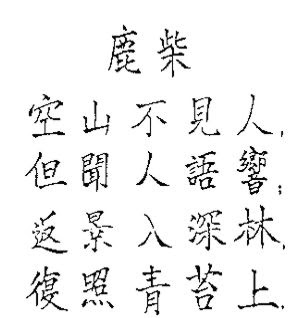 鹿柴
空山不見人,
但聞人語響;
返景入深林,
復照青苔上.